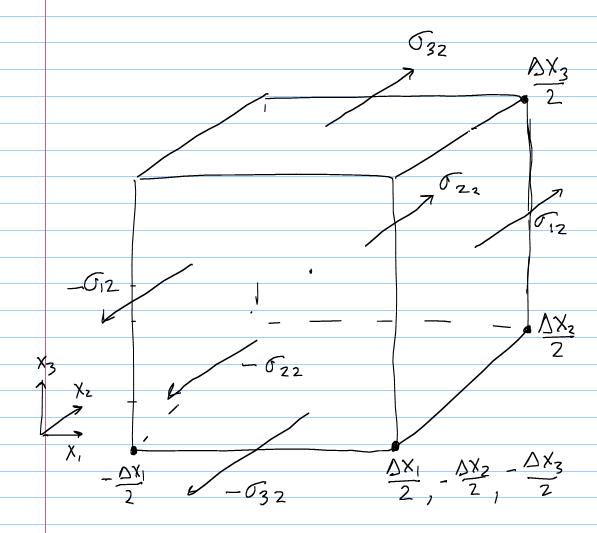 σ32
ΔX3/2
σ22
σ12
-σ12
ΔX2/2
-σ22
X3
X2
X1
-ΔX1/2
-σ32
ΔX1/2, -ΔX2/2, -ΔX3/2